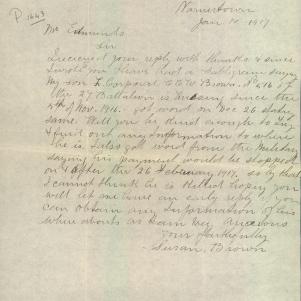 P 1643
Narriertown
Jan 10, 1917
Mr Edmunds
Sir
I received your reply with thanks & since
I wrote you I have had a Cablegram saying
my son L. Corporal C E W Brown. No 516 of
the 27 Battalion is Missing since the
5th of Nov. 1916. got word on Dec 26 date
same. Will you be kind enough to try
& find out any Information to where
he is, I also got word from the Military
saying his payment would be stopped
on & after the 26 February 1917, so by that
I cannot think he is Killed hoping you
will let me have an early reply if you
can obtain any Information of his
where abouts as I am very Anxious
Your faithfully
Susan. Brown